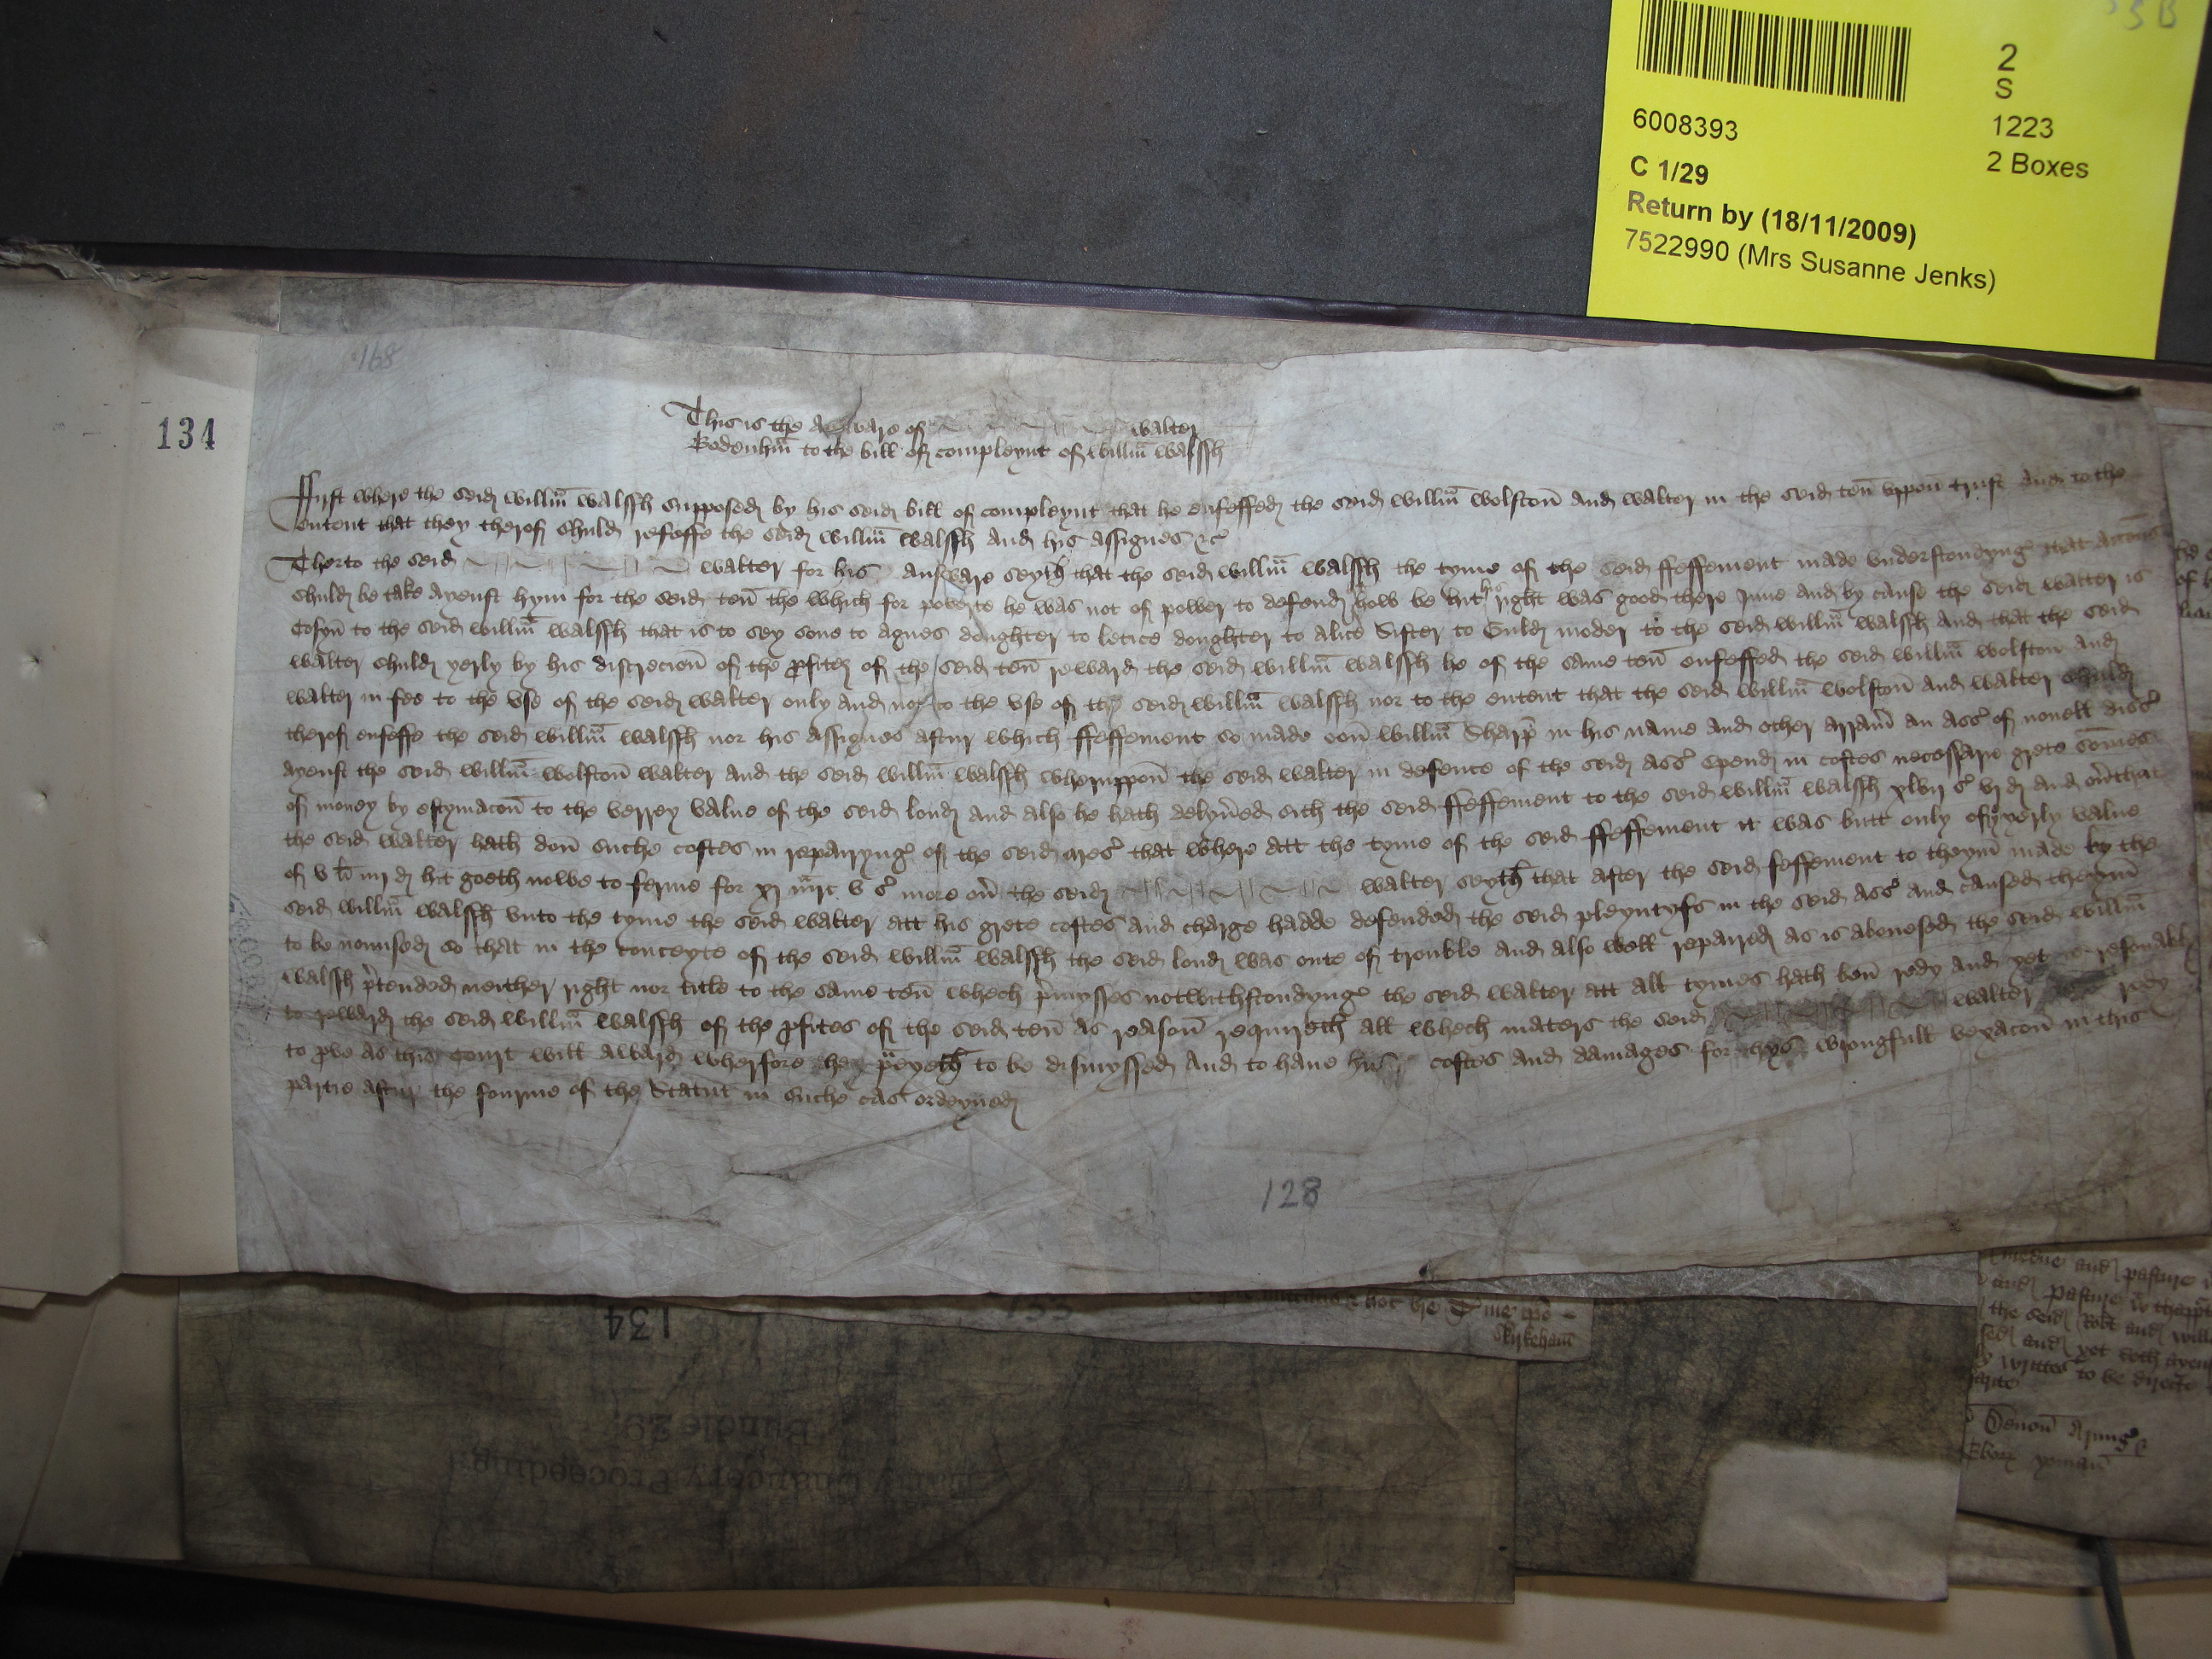 53 B
2
S
1223
2 Boxes
6008393
C 1/29
Return by (18/11/2009)
7522990 (Mrs Susanne Jenks)
168
134
This is the answare of walter
Bodenhm̃ to the bill of compleynt of Willm̃ Walssh
First where the seid Willm̃ Walssh supposed by his seid bill of compleynt that he enfeffed the seid Willm̃ Wolston̄ and Walter in the seid ten̄ vppon̄ trust and to the
entent that they therof shuld refeffe the seid Willm̃ Walssh and his assignes &c
Therto the seid Walter for his answare seyth that the seid Willm̃ Walssh the tyme of the seid ffeffement made vnderstondyng that accons
shuld be take ayenst hym for the seid ten̄ the which for poverte he was not of power to defend how be hit his right was good there Inne and by cause the seid Walter is
Cosyn̄ to the seid Willm̃ Walssh that is to sey sone to Agnes doughter to Letice doughter to Alice Sister to moder to the seid Willm̃ Walssh and that the seid
Walter shuld yerly by his discrecion̄ of the p̱fites of the seid ten̄ reward the seid Willm̃ Walssh he of the same ten̄ enfeffed the seid Willm̃ Wolston and
Walter in fee to the vse of the seid Walter only and not to the vse of the seid Willm̃ Walssh nor to the entent that the seid Willm̃ Wolston̄ and Walter shuld
therof enfeffe the seid Willm̃ Walssh nor his assignes aftur which ffeffement so made oon̄ Willm̃ Sharp̄ in his name and other arram̄ an ass' of nouell diss'
ayenst the seid Willm̃ Wolston̄ Walter and the seid Willm̃ Walssh wheruppon̄ the seid Walter in defence of the seid ass' spend in costes necessarie grete somes
of money by estymacon̄ to the verrey value of the seid lond and also he hath delyu̓ed sith the seid ffeffement to the seid Willm̃ Walssh xlvij s' vj d and ou̓ that
the seid Walter hath don̄ suche costes in repairyng of the seid that where att the tyme of the seid ffeffement it was butt only of yerly value
of v li iiij d hit goeth nowe to ferme for xj m̃rc v s' more ou̓ the seid Walter seyth that after the seid feffement to theym̄ made by the
seid Willm̃ Walssh vnto the tyme the seid Walter att his grete costes and charge hadde defended the seid pleyntyfs in the seid ass' and caused theym̄
to be nounsed so that in the conceyte of the seid Willm̃ Walssh the seid lond was oute of trouble and also well repaired as is abouesed the seid Willm̃
Walssh p̓tended neither right nor title to the same ten̄ whech p̓mysses notwithstondyng the seid Walter att all tymes hath ben̄ redy and yet is resonably
to reward the seid Willm̃ Walssh of the p̱fites of the seid ten̄ as reason̄ requireth all whech maters the seid Walter redy
to p̱ve as this court will award wherfore he p̃yeth to be dismyssed and to haue his costes and damages for hys wrongfull vexacon̄ in this
partie aftur the fourme of the Statut in suche cas ordeyned
128
134
Bundle 29.
Early Chancery Proceedings